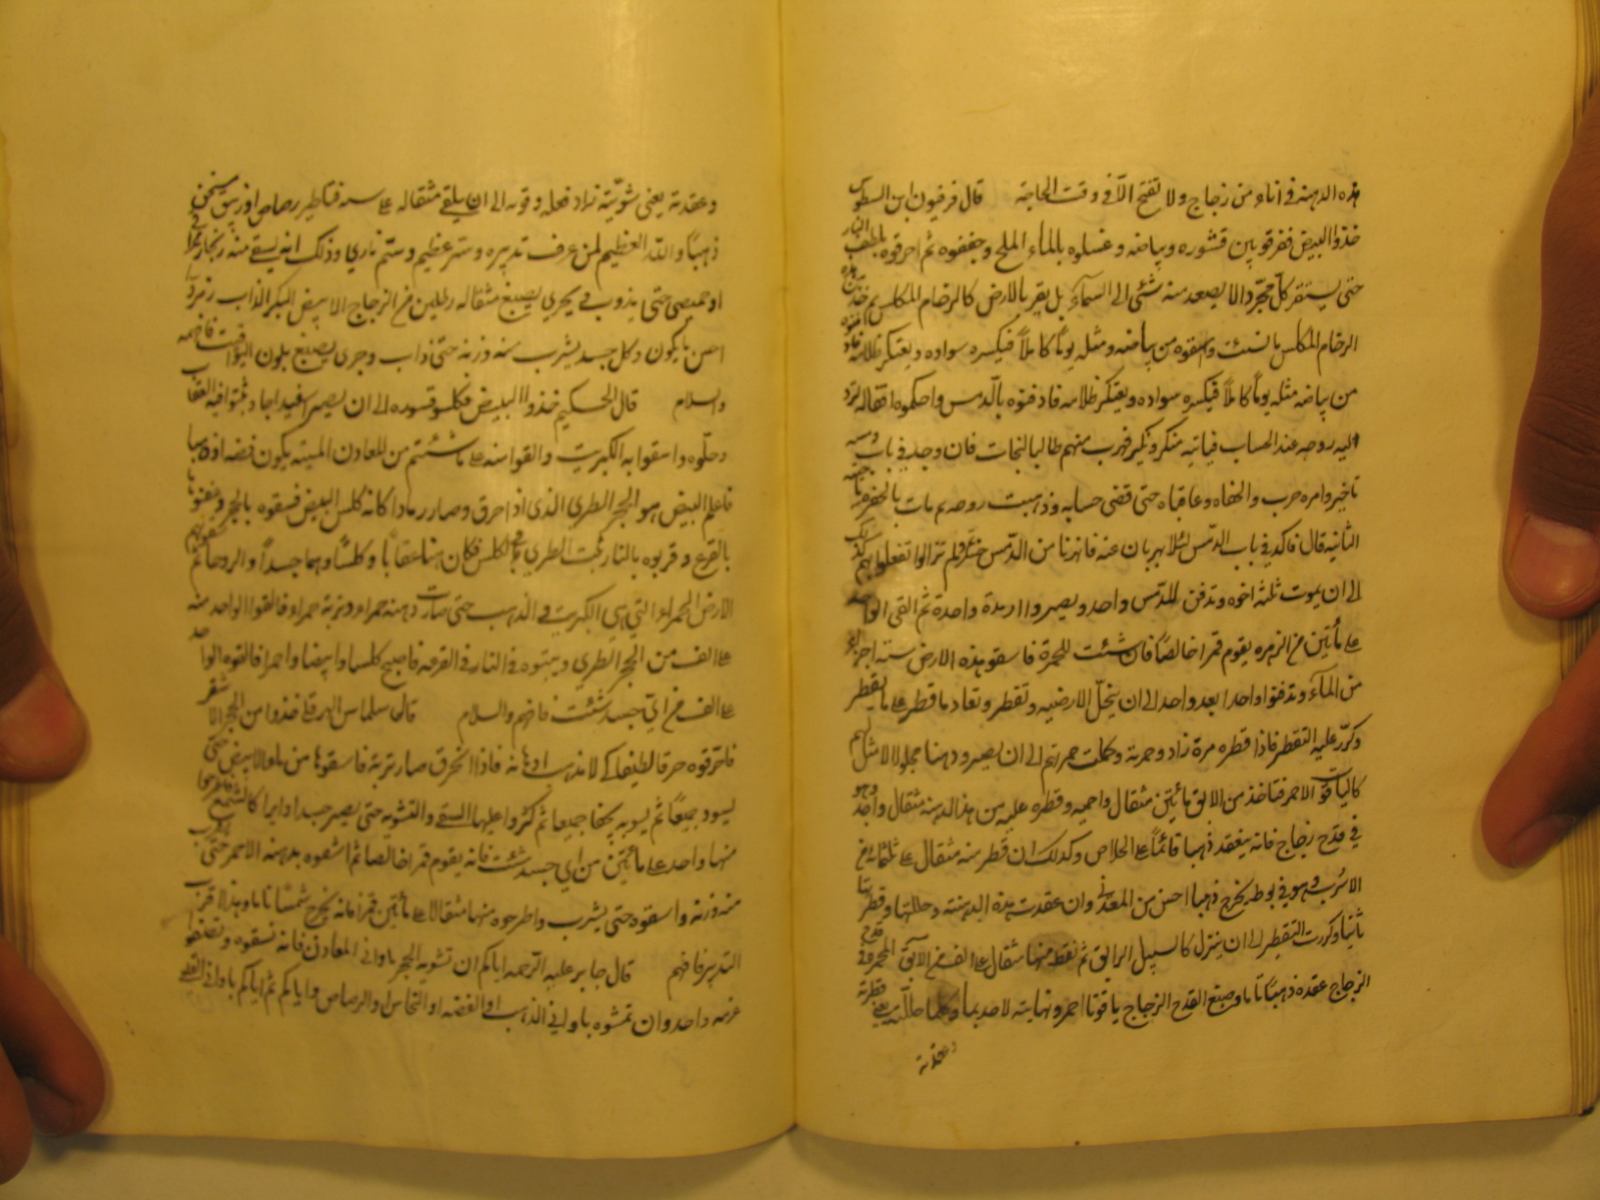 هذه الدهنة في اناء من زجاج ولا تفتح الا في وقت الحاجة قال فرفيون ابن
خذوا البيض ففرقوا بين قشوره وبياضه وغسلوه بالماء الملح وجففوه ثم احرقوه بلطف النار
حتى يستقر كل حجر والا يصعد منه شئ الى السماء بل يقر بالارض كالرخام المكلس ثم خذ هذا
الرخام المكلس بالستت واسقوه من بياضه ومثله يوما كاملا فيكسر سواده ويعتكر ظلامه
من بياضه مثله يوما كاملا فيكسر سواده ويعتكر ظلامه فادفنوه بالدمس واحكموا اقفاله
اليه روحه عند الحساب فياتيه منكر ونكير فهرب منهم طالبا للنجات فان وجد في باب
تاخير وامره حرب والخفاه وعاقباه حتى قضى حسابه وذهبت روحه ثم مات بالحفرة
الثانية قال فاكد في باب الدمس لئلا يهربان عنه فاخرنا من الدمس فلم تزالوا تفعلوا بهم كذلك
الى ان يموت ثلثه اخوه وتدفن للدمس واحد ويصيروا اربعة واحدة ثم القى الواحد
على مأتين من الزهره يقوم قمرا خالصا فان شئت للحمرة فاسقو هذه الارض ستة اجزاء
من الماء وتدفنوا واحدا بعد واحد الى ان ينحل الارضيه وتقطر وتعاد ما قطر على ما يقطر
وكرر عليه التقطر فاذا قطره مرة زاد وحمرته وكملت حمرتهم الى ان يصير ودهنا محلولا لا مثل لهم
كالياقوت الاحمر فتاخذ من الابق مائتين مثقال واحميه وقطره عليه من هذا الدهنه مثقال واحد وهو
في قدح زجاج فانه ينعقد ذهبا قائما على الخلاص وكذلك ان قطر منه مثقال على ثلثمائة من
الاسرب وهو في بوط يخرج ذهبا احسن من المعدني وان عقدت هذه الدهنته وحللتها وقطرتها
ثانيا وكررت التقطير الى ان ينزل كالسبيل الرايق ثم نقط منها مثقال على الف من الابق المحمر في قدح
الزجاج عقده ذهبا تاما وصبغ القدح الزجاج ياقوتا احمر ونهايته لا حد بها وكلما حللت
وعقدته
وعقدته يعني شويته زاد فعله وقوته الى ان يلقى مثقاله على فناطير رصاص او زيبق
ذهبا والله العظيم لمن عرف تدبيره وسر عظيم وستم ناري وذلك انه يسقى منه زنجار
او حميصى حتى يذوب في يجري يصبغ مثقاله رطلين من الزجاج الابيض البكر الذاب زبرجد
احسن ما يكون وكل جسد يشرب منه وزنه حتى ذاب وجرى يصبغ بلون اليواقيت فافهمه
والسلام قال الحكيم خذوا البيض فكلسو قسوره الى ان يصير اسفيداجا وثبتوا فيه العقاب
وحلوه واسقوا به الكبريت والقوا منه على ما شئتم من المعادن الميته يكون فضه او ذهبا
فاعلم البيض هو الحجر الطري الذي اذا حرق وصار رمادا كانه كلس البيض فسقوه بالخمر وعفنوا
بالقرع وقربوه بالنار ثبت الطري مع الكلس فكان هنا عقابا وكلسا وهما جسدا والروحا ثم اسقوا بهم
الارض الحمراء التي هي الكبريت في الذهب حتى صارت دهنه حمراء وتربة حمراء فالقوا الواحد منه
على الف من الحجر الطري وبيتوه في النار في القرعه فاصبح كلسا وابيضا واحمرا فالقوه الواحد
على الف من اي جسد شئت فافهم والسلام قال سلماس الهرقلي خذوا من الحجر الاشقر
فاحرقوه حرقا لطيفا لاند هب اوهانه فاذا انحرق صار تربة فاسقوها من ماء الابيض حتى
يسود جميعا ثم يسويه بخفا جميعا ثم كرروا عليها السقي والتشويه حتى يصير جسدا ذايبا كالشمع فاطرحوا
منها واحد على مأتين من اي جسد شئت فانه يقوم قمرا خالصا ثم اسقوه بدهنه الاحمر حتى يشرب
منه وزنه واسقوه حتى يشرب واطرحوه منها مثقالا على مأتين قمرا فانه يخرج شمسا تاما وهذا قرب
التدبير فافهم قال جابر عليه الرحمه اياكم ان تشويه الحجر باواني المعادن فانه تسقوه وتصنعوا
عرضه واحد وان تمشوه باواني الذهب او الفضه او النحاس او الرصاص واياكم ثم اياكم باواني القلعي